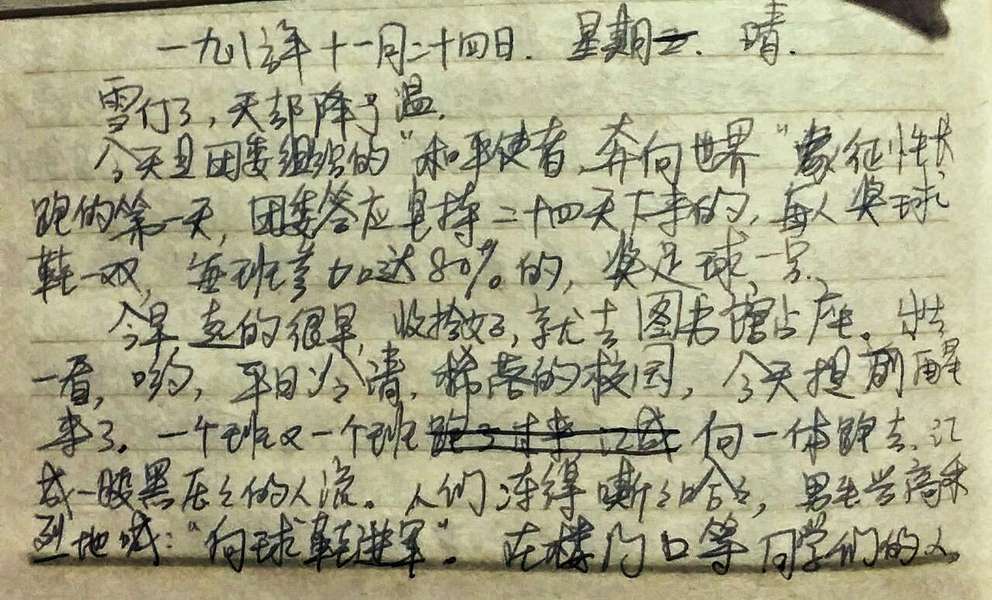 一九八六年十一月二十四日. 星期一. 晴.
雪停了,天却降了温.
今天是团委组织的“和平使者,奔向世界”象征性长
跑的第一天,团委答应坚持二十四天下来的,每人奖球
鞋一双,每班参加达80%的,奖足球一只.
今早起的很早,收拾好,就去图书馆占座。出去
一看,哟,平日冷清,稀落的校园,今天提前醒
来了。一个班又一个班 向一体跑去,汇
成一股黑压压的人流。人们冻得嘶嘶哈哈,男生兴高采
烈地喊:“向球鞋进军”。在楼门口等同学们的人。